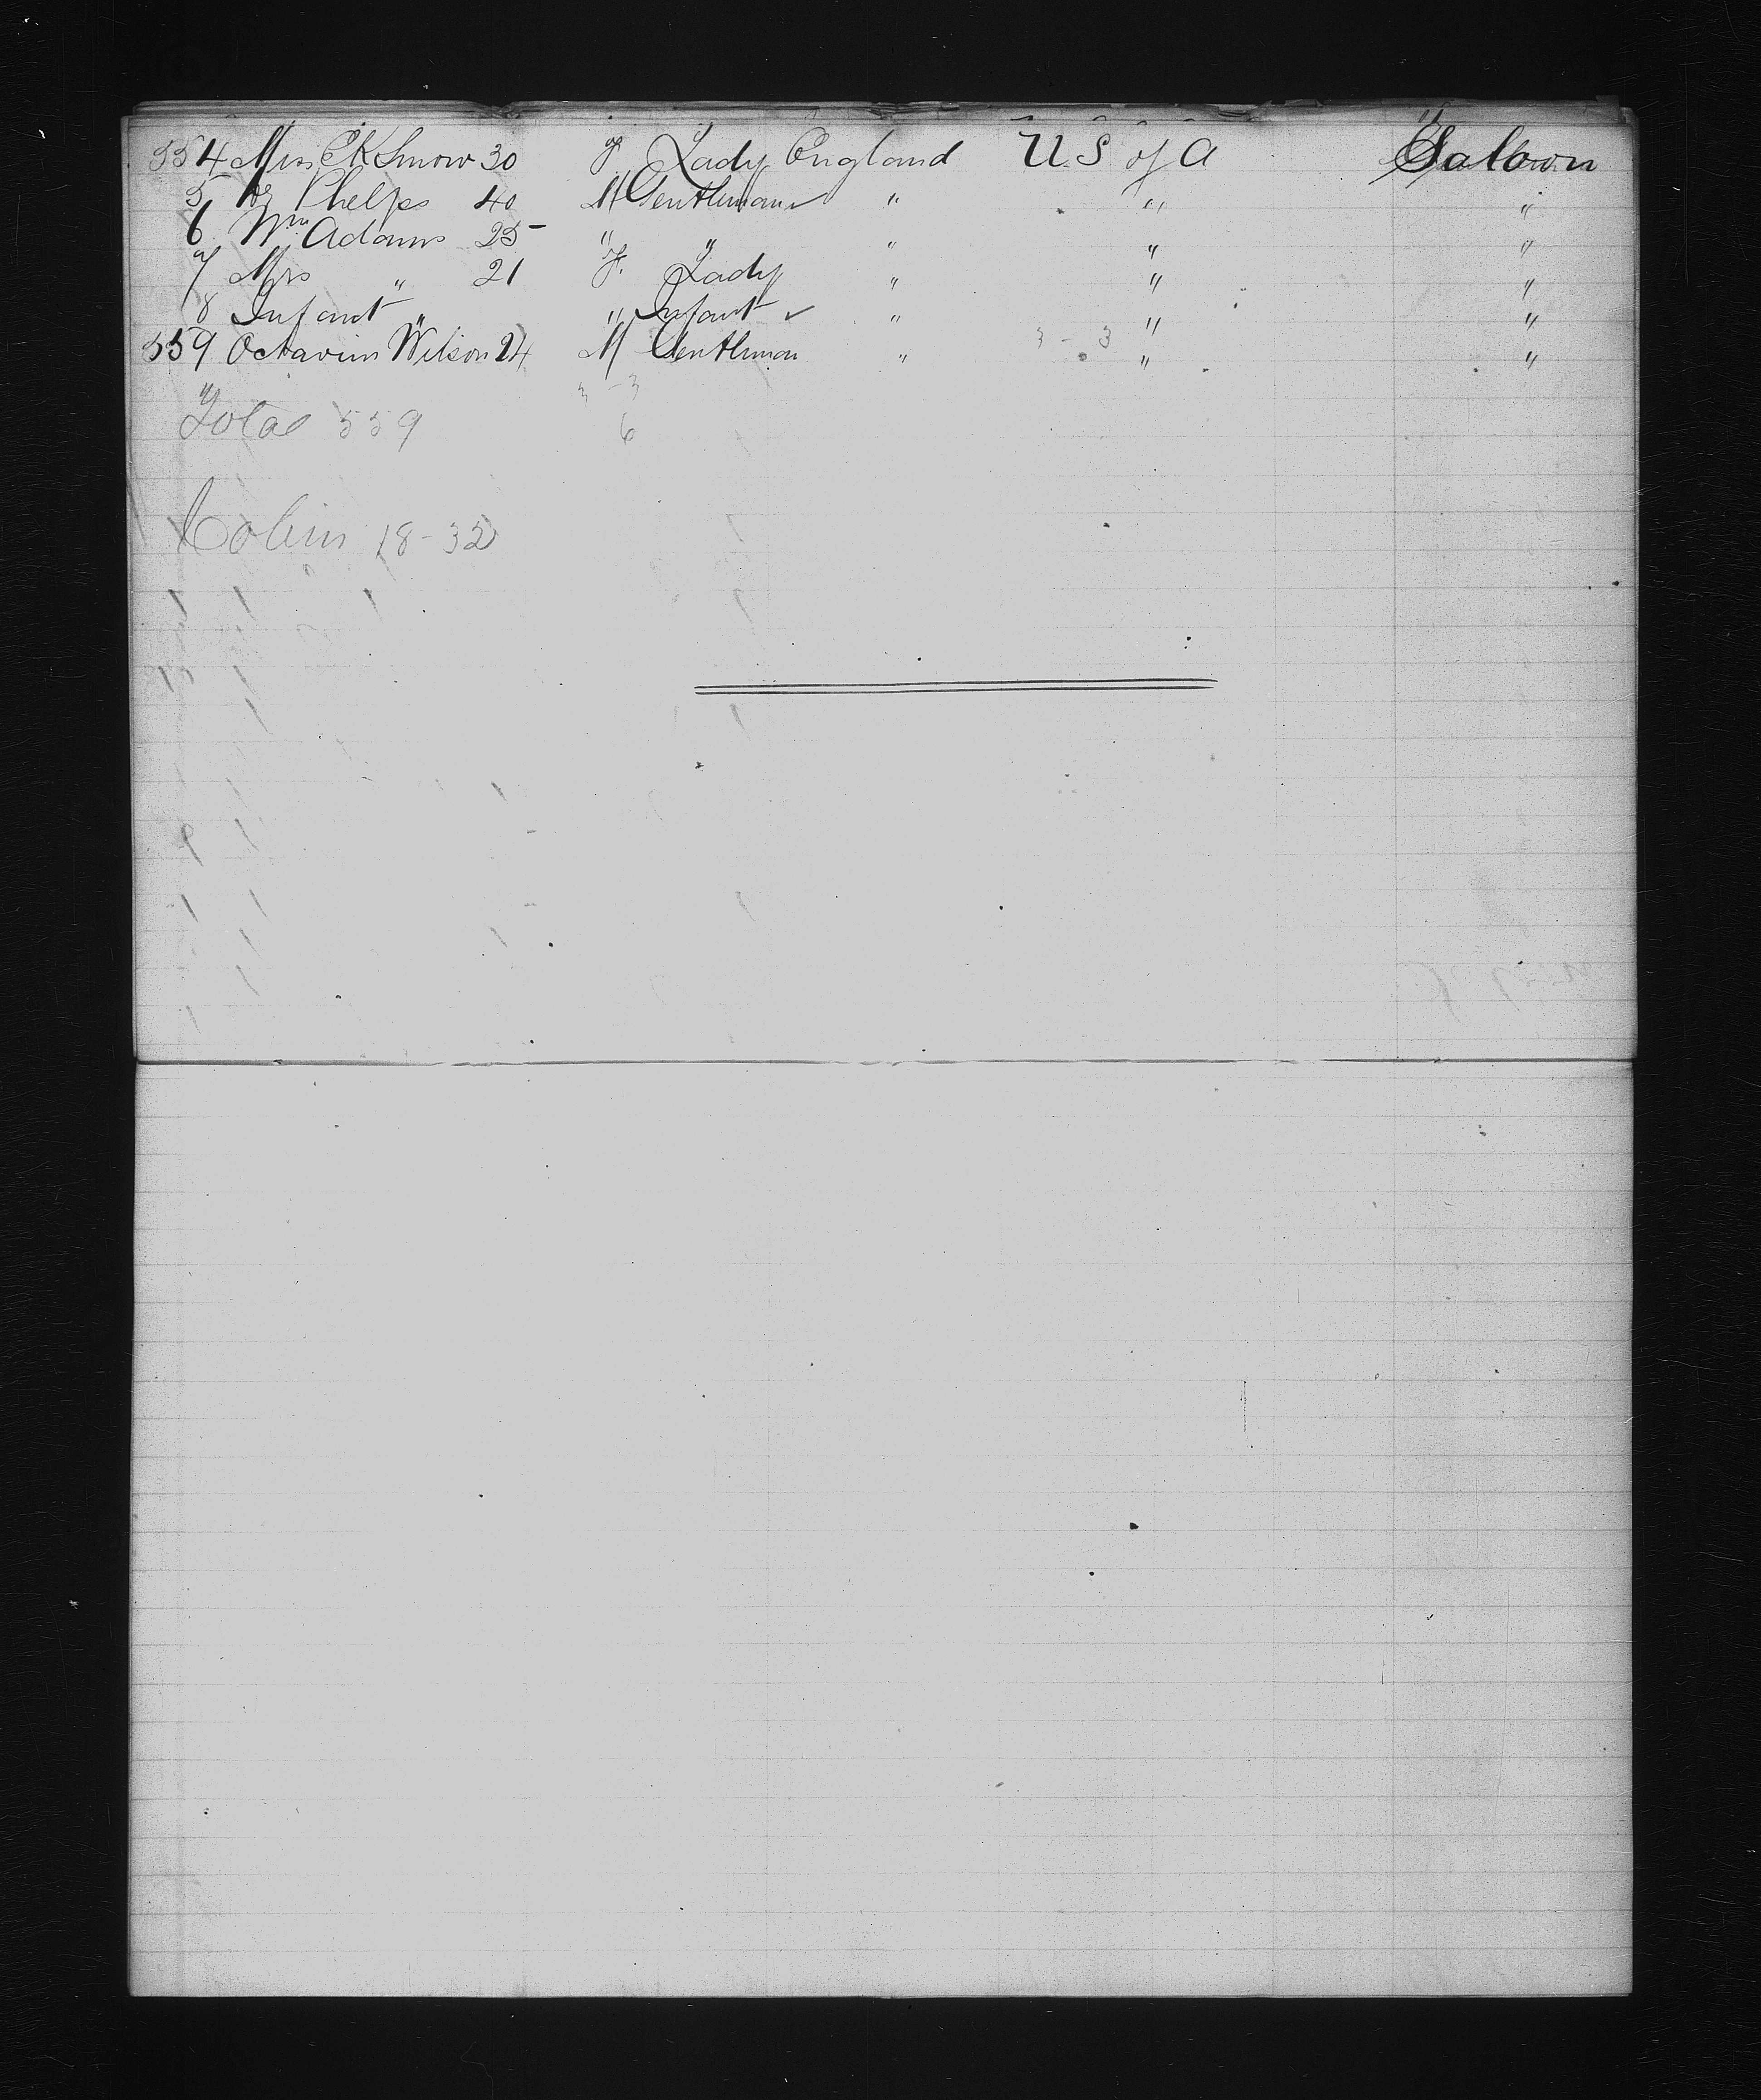 554 Miss E K Snow 30 F Lady England U S of A Saloon
5 Dr Phelps 40 M Gentleman " " "
6 Wm Adams 25 " " " " "
7 Mrs " 21 F. Lady " " "
8 Infant " " Infant " " "
559 Octavius Wilson 24 M Gentleman " " "
3 - 3
3 - 3
Total 559 6
Cabin 18-32